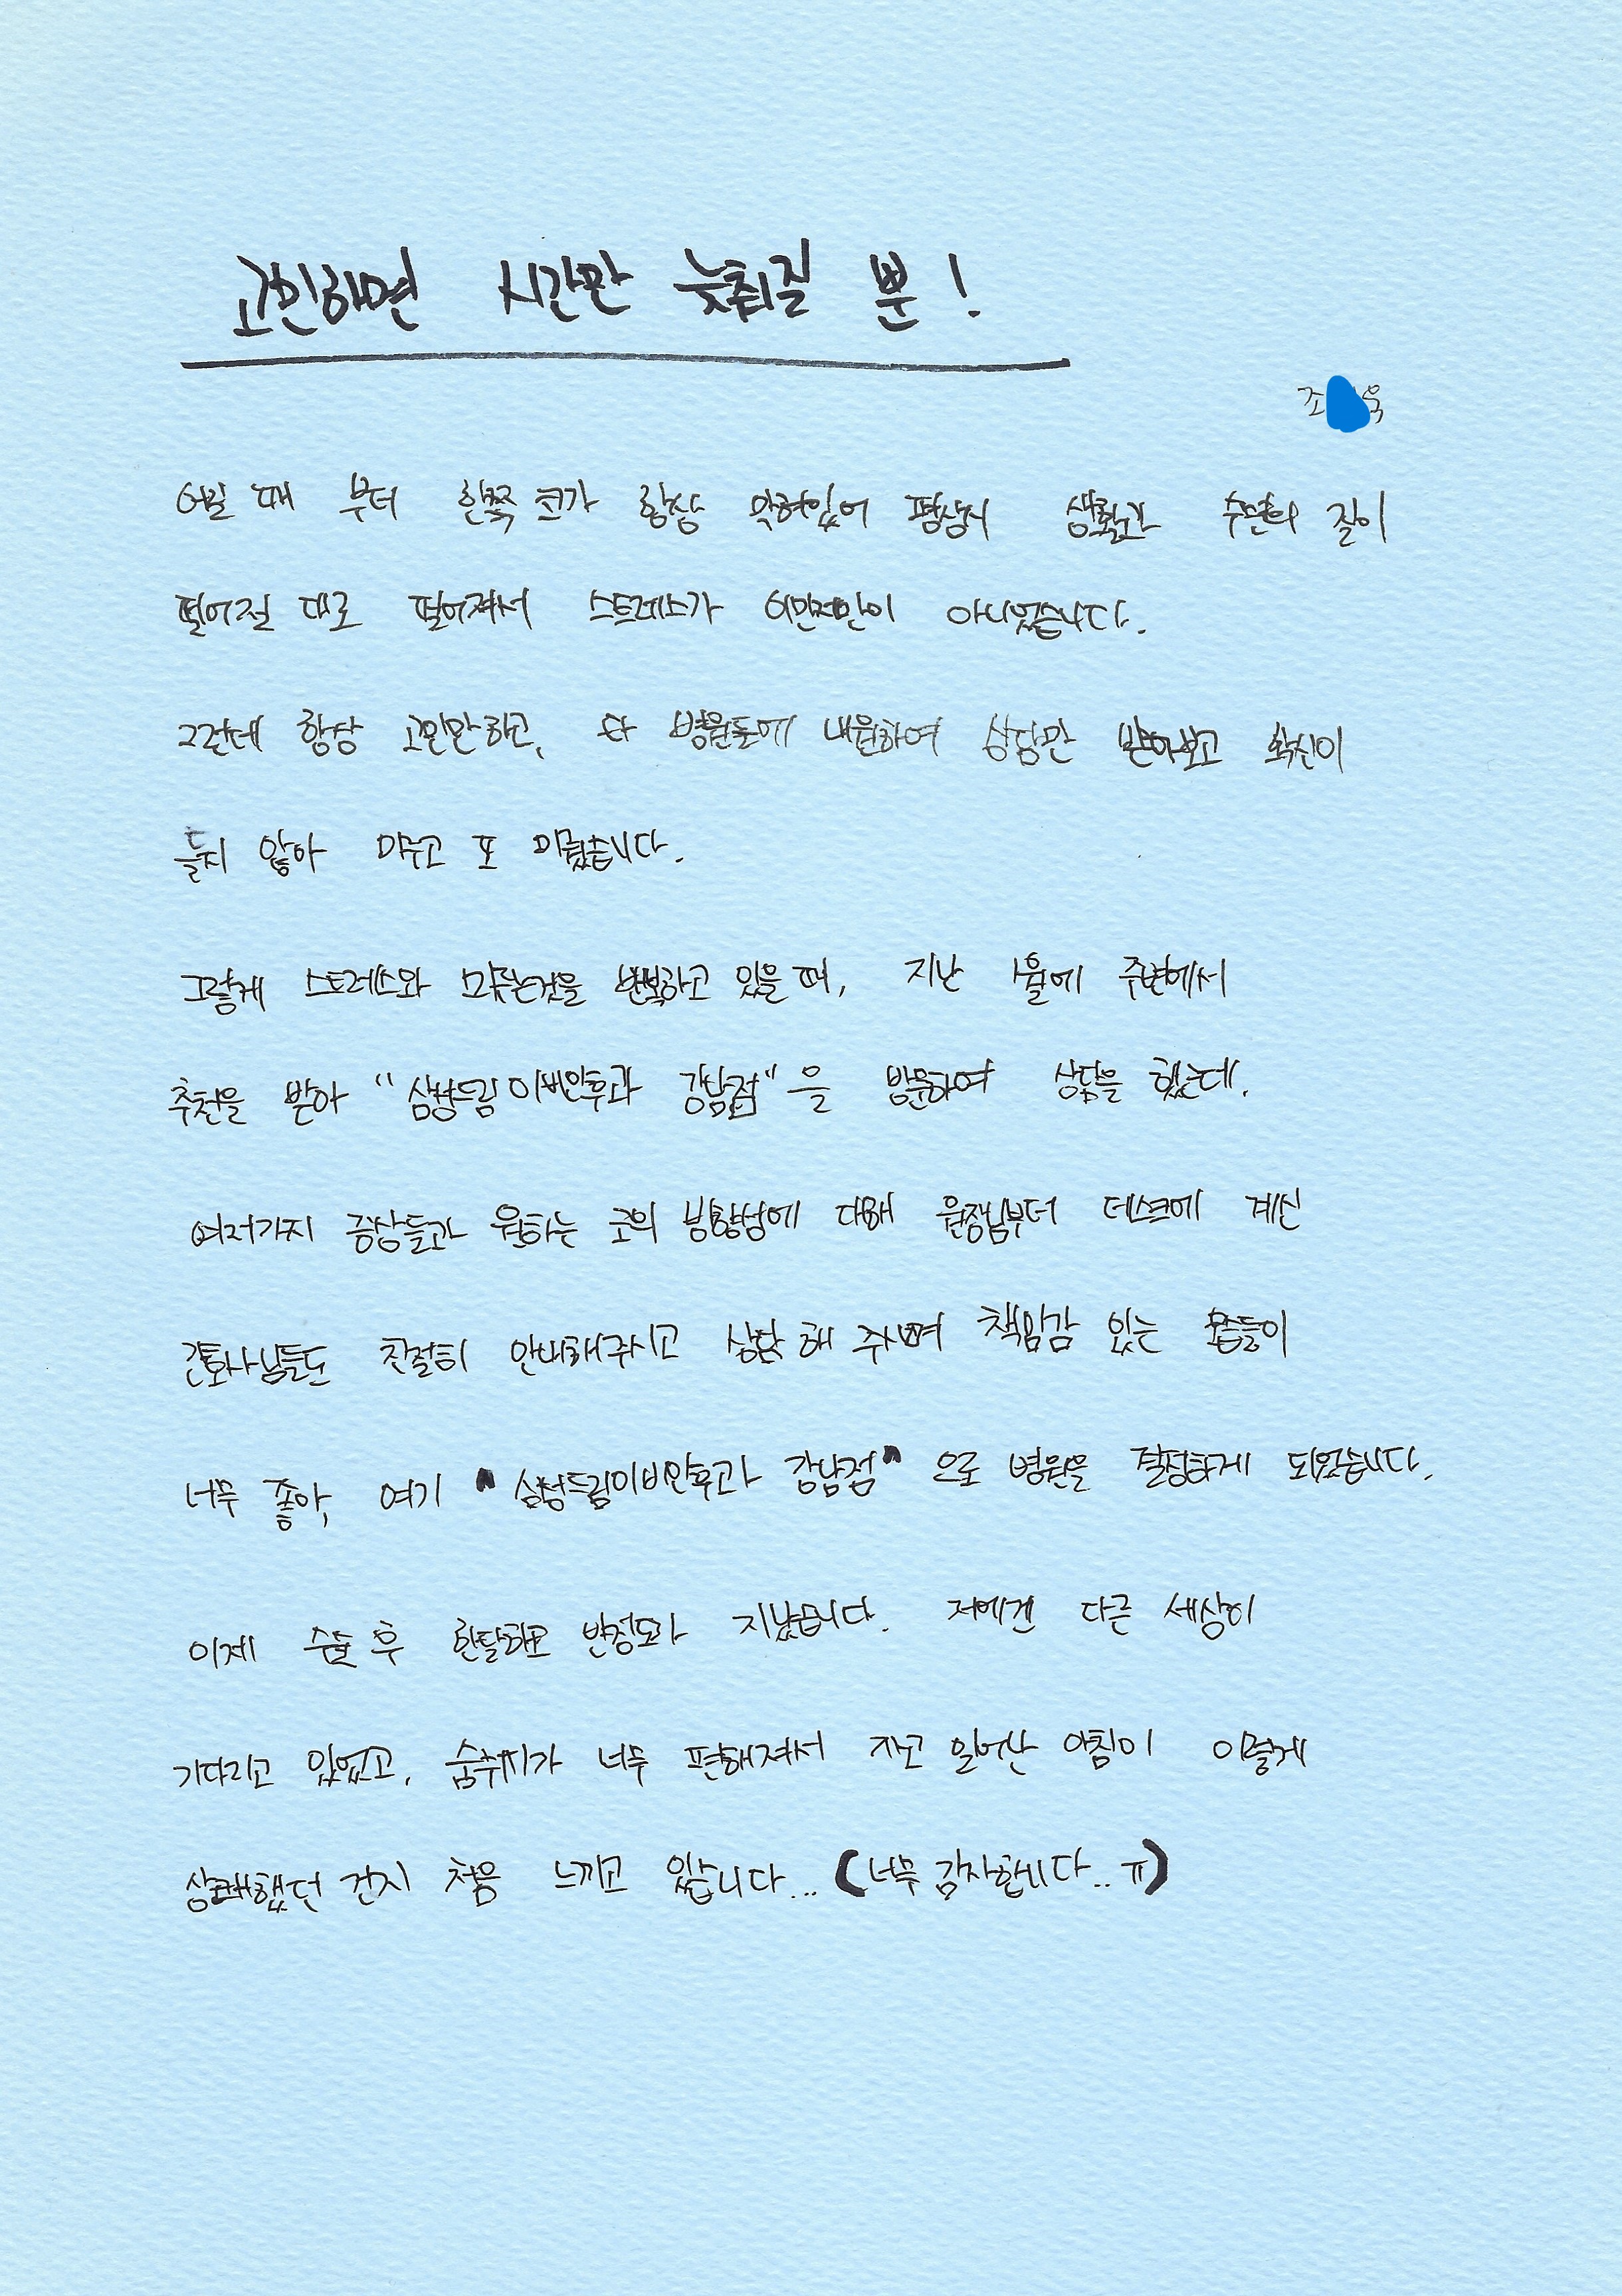 고민하면 시간만 늦춰질 뿐!
조 욱
어릴 때 부터 한쪽 코가 항상 막혀있어 평상시 생활과 수면의 질이
떨어질 대로 떨어져서 스트레스가 이만저만이 아니었습니다.
그런데 항상 고민만 하고, 타 병원들에 내원하여 상담만 받아보고 확신이
들지 않아 미루고 또 미뤘습니다.
그렇게 스트레스와 미루는것을 반복하고 있을 때, 지난 1월에 주변에서
추천을 받아 "삼성드림이비인후과 강남점"을 방문하여 상담을 했는데,
여러가지 증상들과 원하는 코의 방향성에 대해 원장님부터 데스크에 계신
간호사님들도 친절히 안내해주시고 상담 해 주시며 책임감 있는 모습들이
너무 좋아, 여기 "삼성드림이비인후과 강남점" 으로 병원을 결정하게 되었습니다.
이제 수술 후 한달하고 반정도가 지났습니다. 저에겐 다른 세상이
기다리고 있었고, 숨쉬기가 너무 편해져서 자고 일어난 아침이 이렇게
상쾌했던 건지 처음 느끼고 있습니다... (너무 감사합니다..ㅠ)